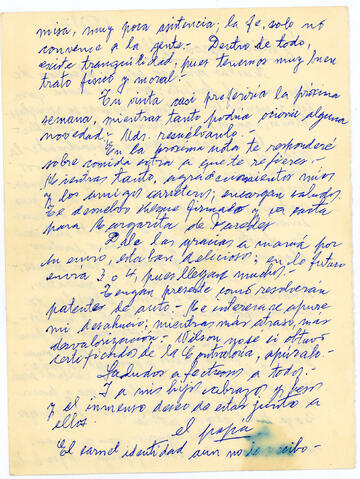 misa, muy poca asistencia; la fe, solo no
convence a la gente.- Dentro de todo,
existe tranquilidad, pues tenemos muy buen
trato físico y moral.-
Tu visita casi preferiría la próxima
semana, mientras tanto podría ocurrir alguna
novedad.- Uds. resuélvanlo.-
En la próxima nota te responderé
sobre comida extra a que te refieres.-
Mientras tanto, agradecimientos míos
y los amigos carreteros; encargan saludos.
Te devuelvo cheque firmado y va carta
para Margarita de Paredes
Dale las gracias a mamá por
su envío, estaban delicioso; en lo futuro
envía 3 o 4, pues llegaron muchos.-
Tengan presente como resolverán
patentes de auto.- Me interesa se apure
mi desahucio; mientras más atraso, más
desvalorización.- Wilson no se si obtuvo
certificados de la Controloría, apúralo.-
Saludos afectuosos a todos.-
Y a mis hijos abrazos y besos
y el inmenso deseo de estar junto a
ellos.
el papa
El carnet identidad aun no recibo.-